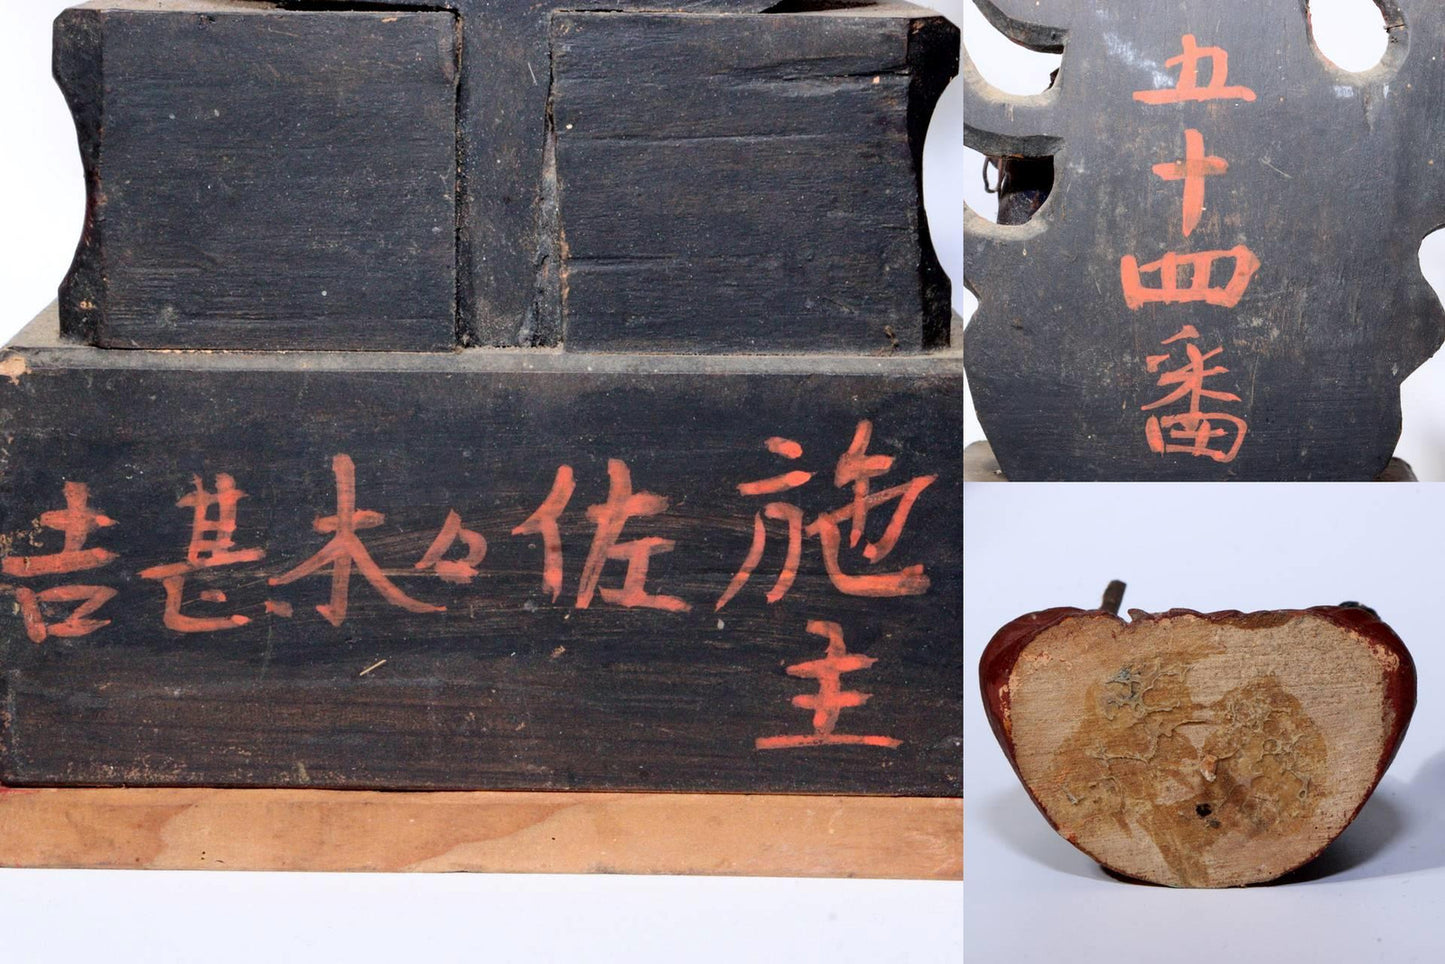 施主
佐々木甚吉
五十四番